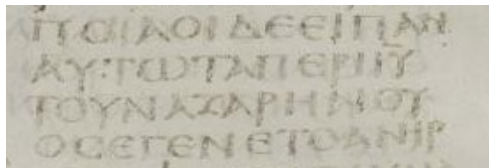 ΠΟΙΑΟΙΔΕΕΙΠΑΝ
ΑΥΤΩΤΑΠΕΡΙΙ̅Υ̅
ΤΟΥΝΑΖΑΡΗΝΟΥ
ΟϹΕΓΕΝΕΤΟΑΝΗΡ